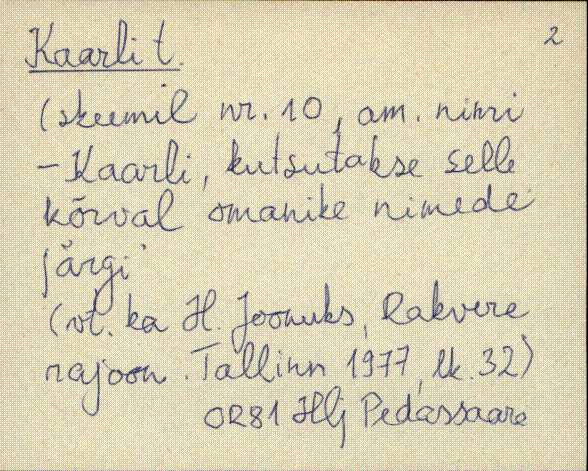 Kaarli t. 2
(skeemil nr. 10, am. nimi
- Kaarli, kutsutakse selle
kõrval omanike nimede
järgi
(vt. ka H. Joonuks, Rakvere
rajoon. Tallinn 1977, lk. 32)
OR81 Hlj Pedassaare